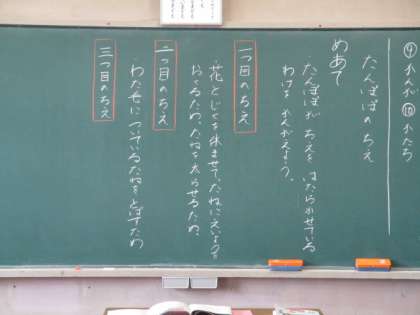 ⑨ かんが ⑩ かたち
たんぽぽのちえ
めあて
たんぽぽが ちえを はたらかせている
わけを かんがえよう。
一つ目のちえ
・花とじくを休ませて、たねにえいようを
おくるため。たねを太らせるため。
二つ目のちえ
・わた毛についているたねをとばすため
三つ目のちえ